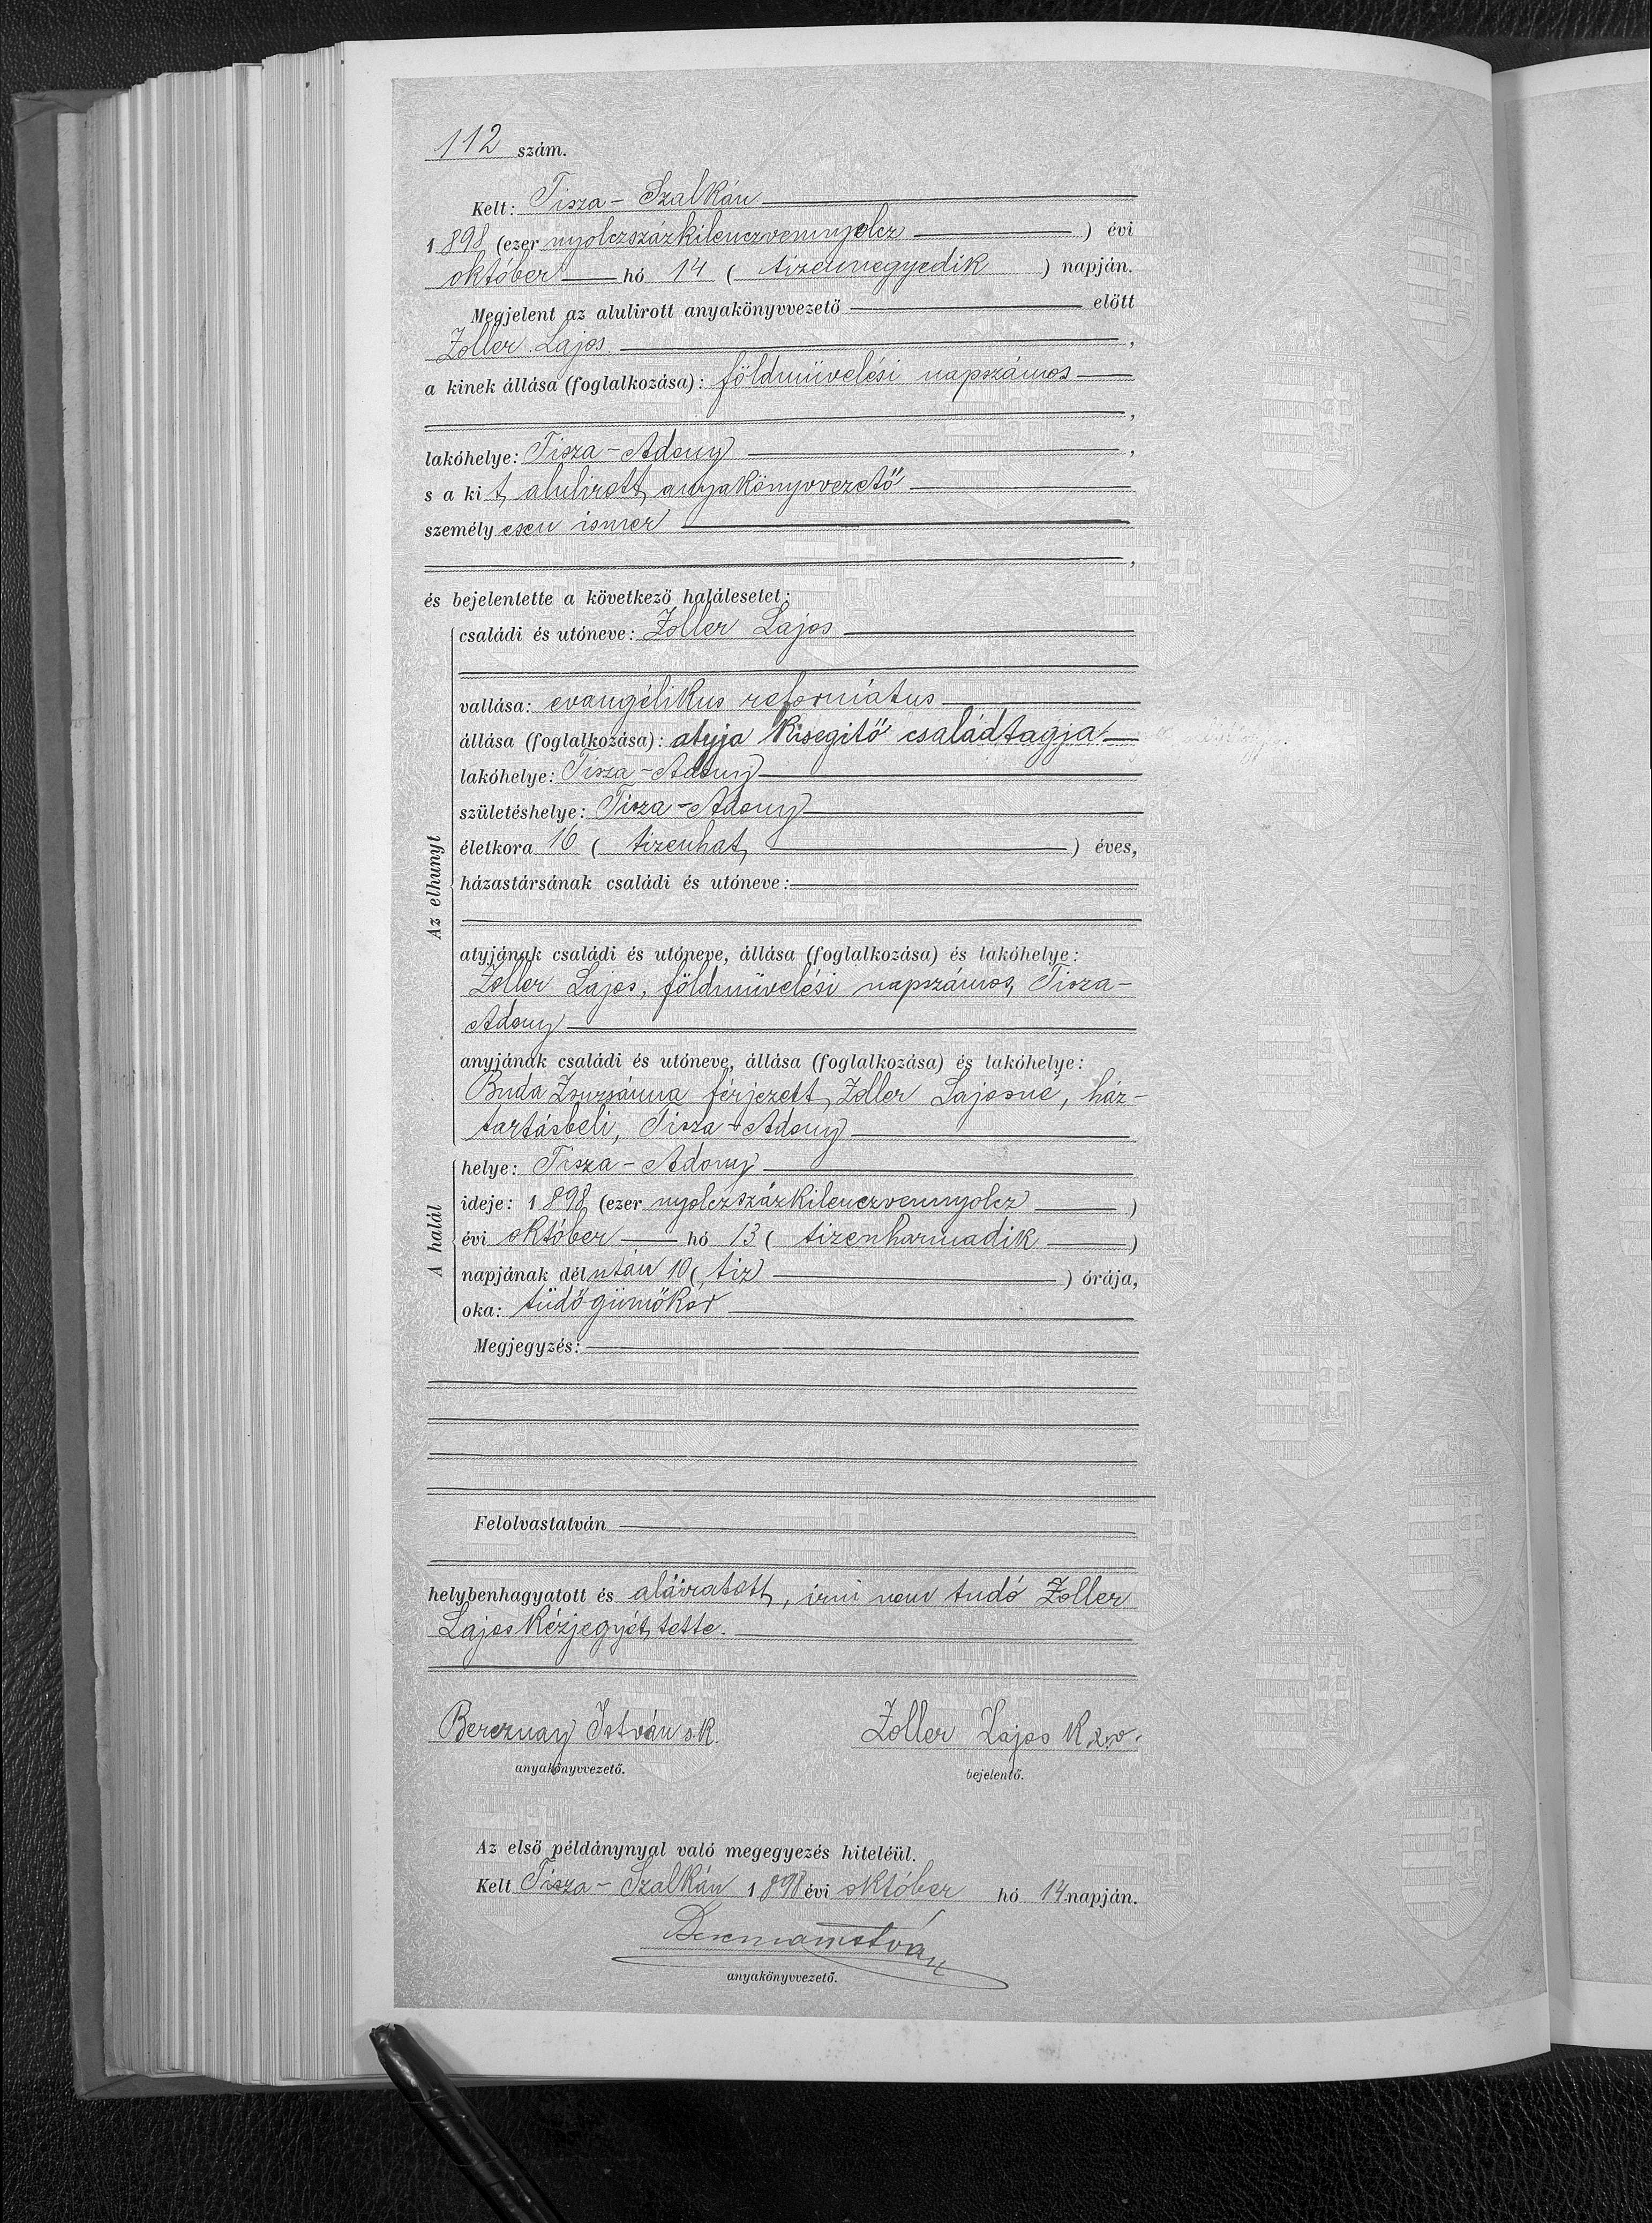 112 szám.
Kelt: Tisza-Szalkán
1898 (ezer nyolczszázkilenczvennyolcz) évi
október hó 14 (tizennegyedik) napján.
Megjelent az alulirott anyakönyvvezető előtt
Zoller Lajos,
a kinek állása (foglalkozása): földmüvelési napszámos
,
lakóhelye: Tisza-Adony,
s a kit, alulirott anyakönyvvezető
személyesen ismer
,
és bejelentette a következő halálesetet:
Az elhunyt
családi és utóneve: Zoller Lajos
vallása: evangélikus református
állása (foglalkozása): atyja kisegitő családtagja
lakóhelye: Tisza-Adony
születéshelye: Tisza-Adony
életkora 16 (tizenhat) éves,
házastársának családi és utóneve:
atyjának családi és utóneve, állása (foglalkozása) és lakóhelye:
Zoller Lajos, földmüvelési napszámos, Tisza-
Adony
anyjának családi és utóneve, állása (foglalkozása) és lakóhelye:
Buda Zsuzsánna férjezett Zoller Lajosné, ház-
tartásbeli, Tisza-Adony
A halál
helye: Tisza-Adony
ideje: 1898 (ezer nyolczszázkilenczvennyolcz)
évi október hó 13 (tizenharmadik)
napjának délután 10 (tiz) órája,
oka: tüdőgümőkor
Megjegyzés:
Felolvastatván
helybenhagyatott és aláiratott, irni nem tudó Zoller
Lajos kézjegyét tette.
Bereznay István s.k. Zoller Lajos
anyakönyvvezető. bejelentő.
Az első példánynyal való megegyezés hiteléül.
Kelt Tisza-Szalkán 1898 évi október hó 14 napján.
anyakönyvvezető.